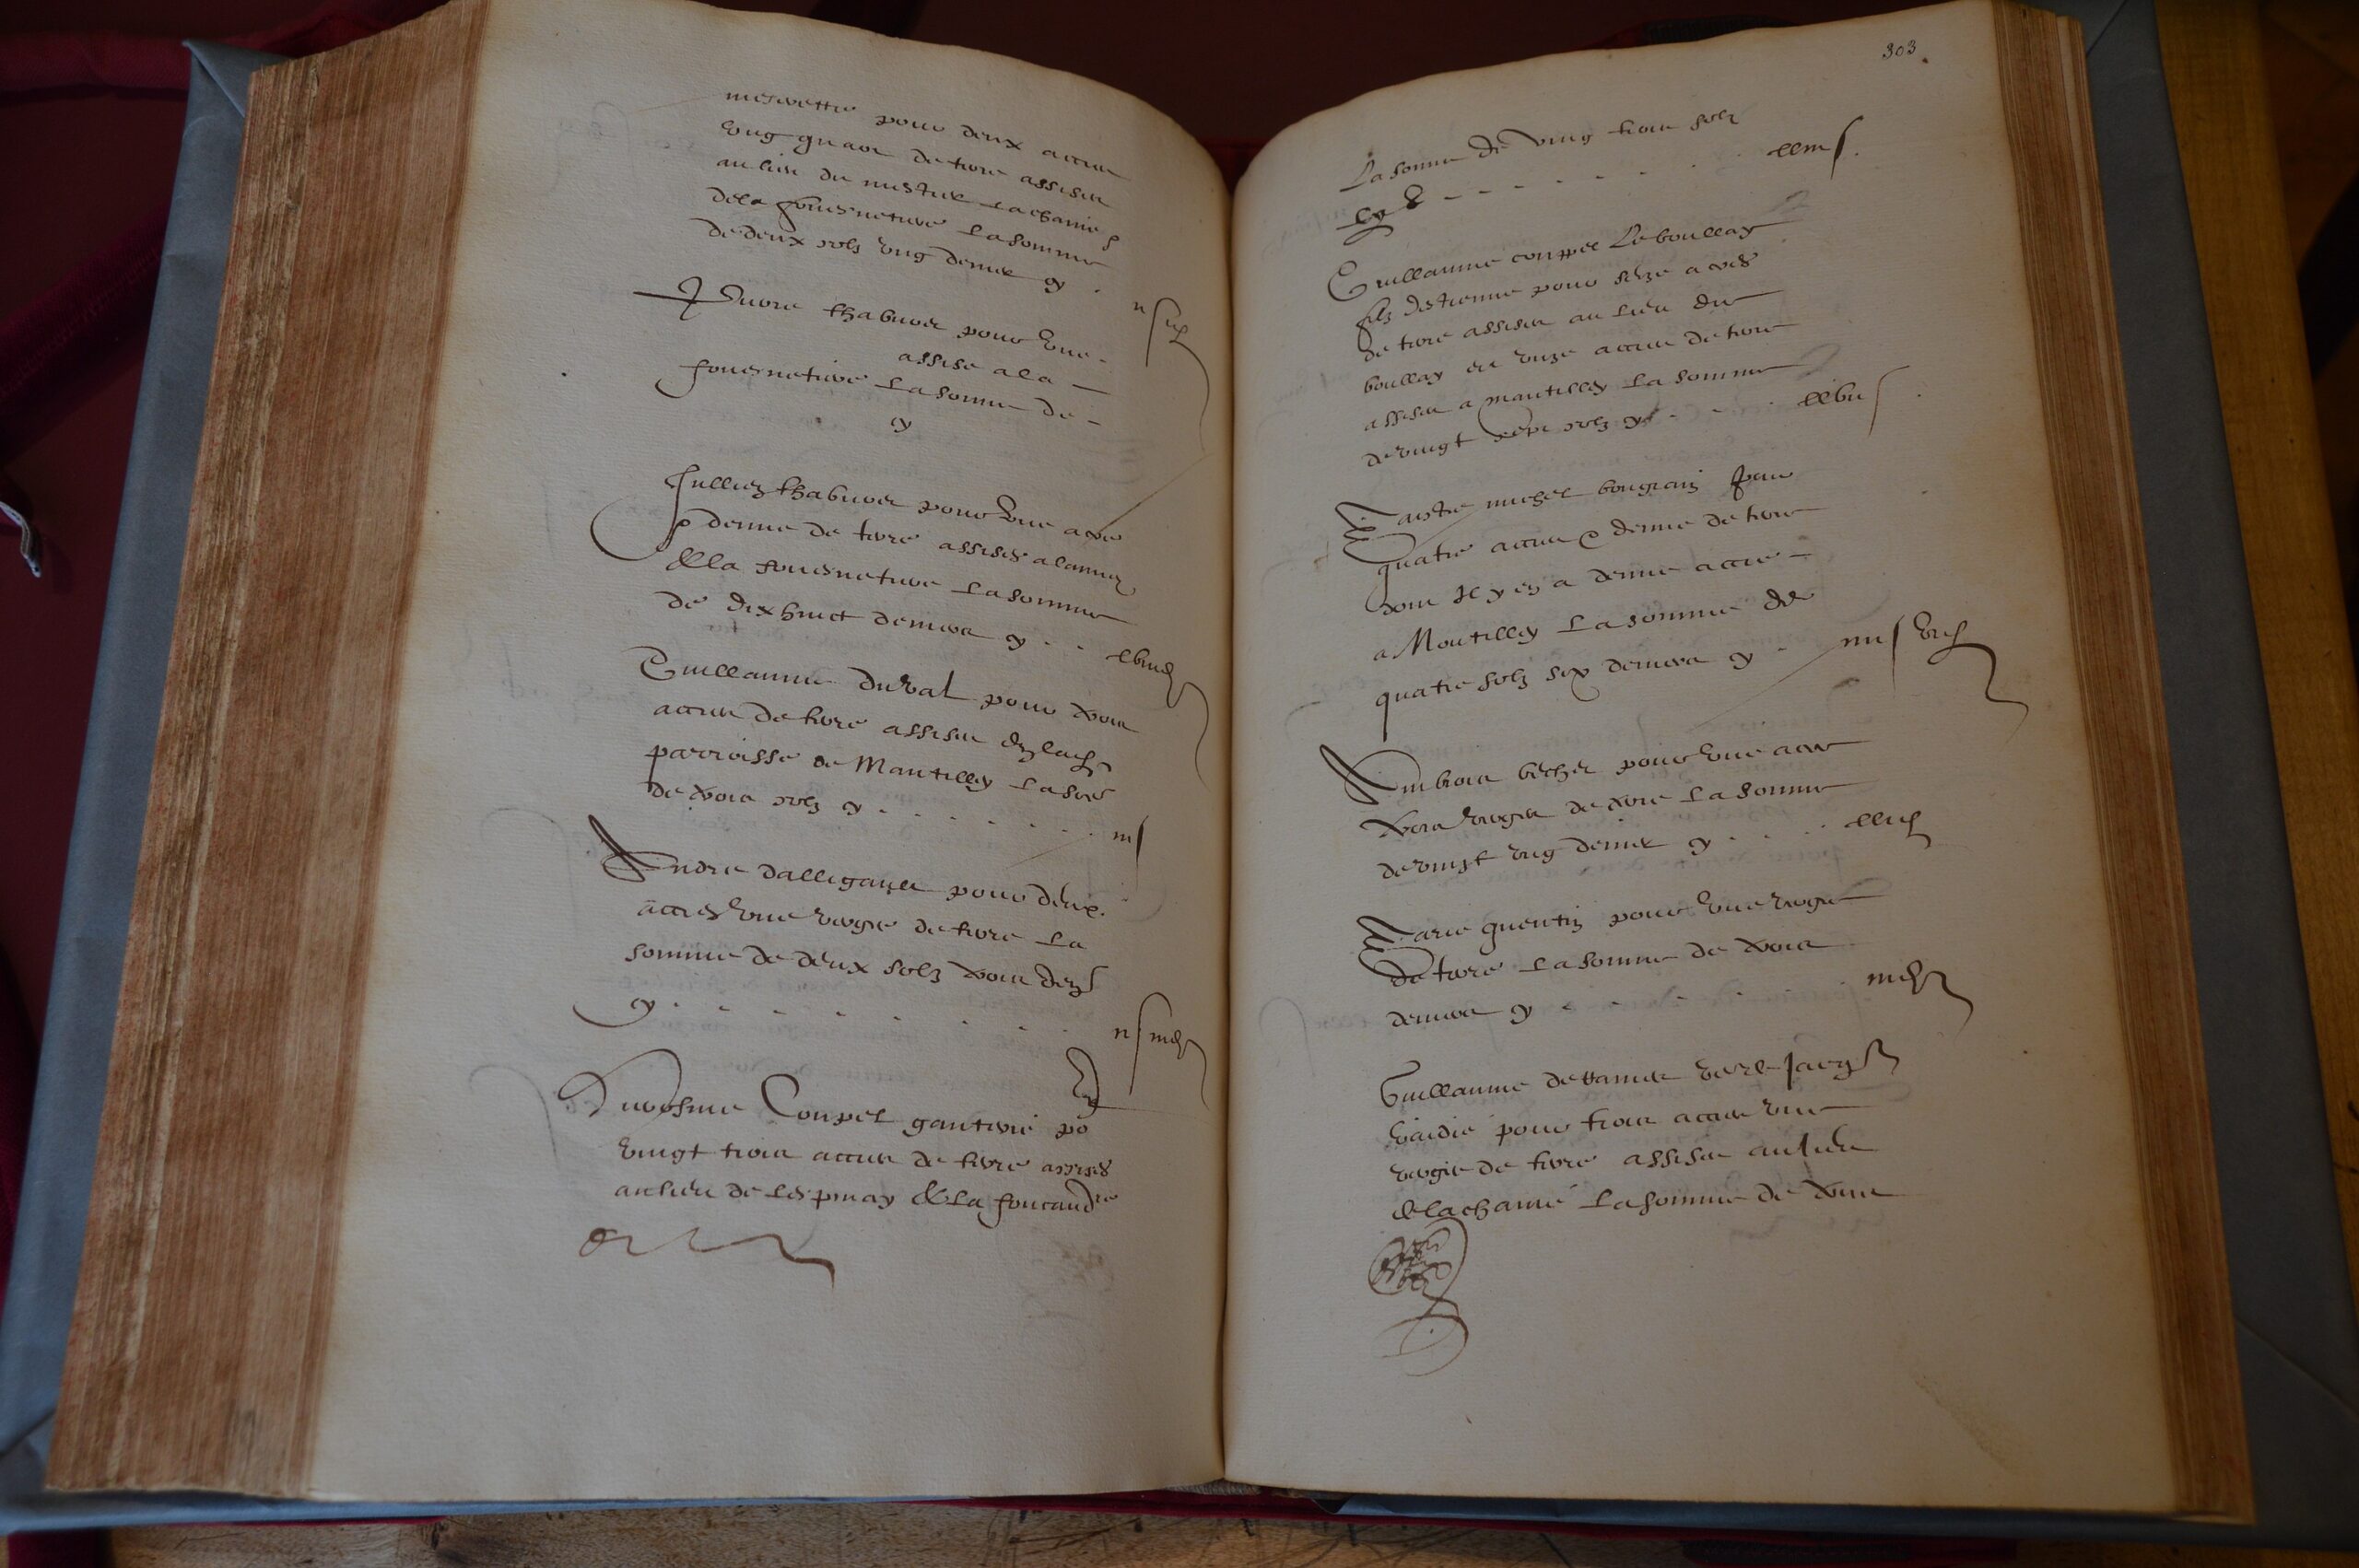 pour deux acres
ung quart de terre assises
au lieu du mestier
de la fouesneture La somme
de deux solz ung denier cy . ii s i d
Pierre thaburet pour une
assise a la
fouesneture La somme de
cy
Jullien thaburet pour une acre
& demie de terre assises
& la fouesneture La somme
de dix huict deniers cy . . xviii d
Guillaume duval pour trois
acres de terre assises
parroisse de Mantilly La som
de trois solz cy . . . . . . . iii s
Andre dallegault pour deux
acres une vergee de terre La
somme de deux solz trois den
cy . . . . . . . ii s iii d
Coupel po
vingt trois acres de terre assises
au lieu de Lespinay & La foucaud
303
La somme de vingt trois solz
cy . . . . . . xxiii s
Guillaume couppel Le boullay
filz destienne pour seize acres
de terre assises au lieu du
boullay et unze acres de terre
assises a mantilly La somme
de vingt sept solz cy . . . xxvii s
Maistre michel bougrain pour
quatre acres & demie de terre
dont Il y en a demie acre
a Mantilly La somme de
quatre solz six deniers cy . iiii s vi d
Ambrois bechet pour une acre
trois vergees de terre La somme
de vingt ung denier cy . . . xxi d
Marie quentin pour une vergee
de terre La somme de trois
deniers cy . . . . . . iii d
Guillaume
pour trois acres une
vergee de terre assises au lieu
de la La somme de trois